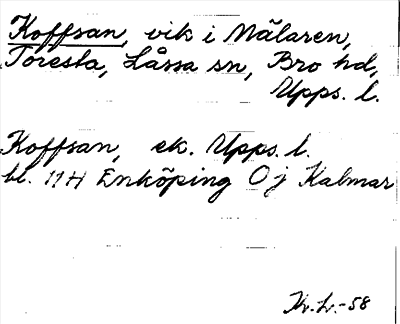 Koffsan, vik i Mälaren,
Toresta, Låssa sn, Bro hd,
Upps. l.
Koffsan, ek. Upps. l.
bl. 11H Enköping Oj Kalmar
-58